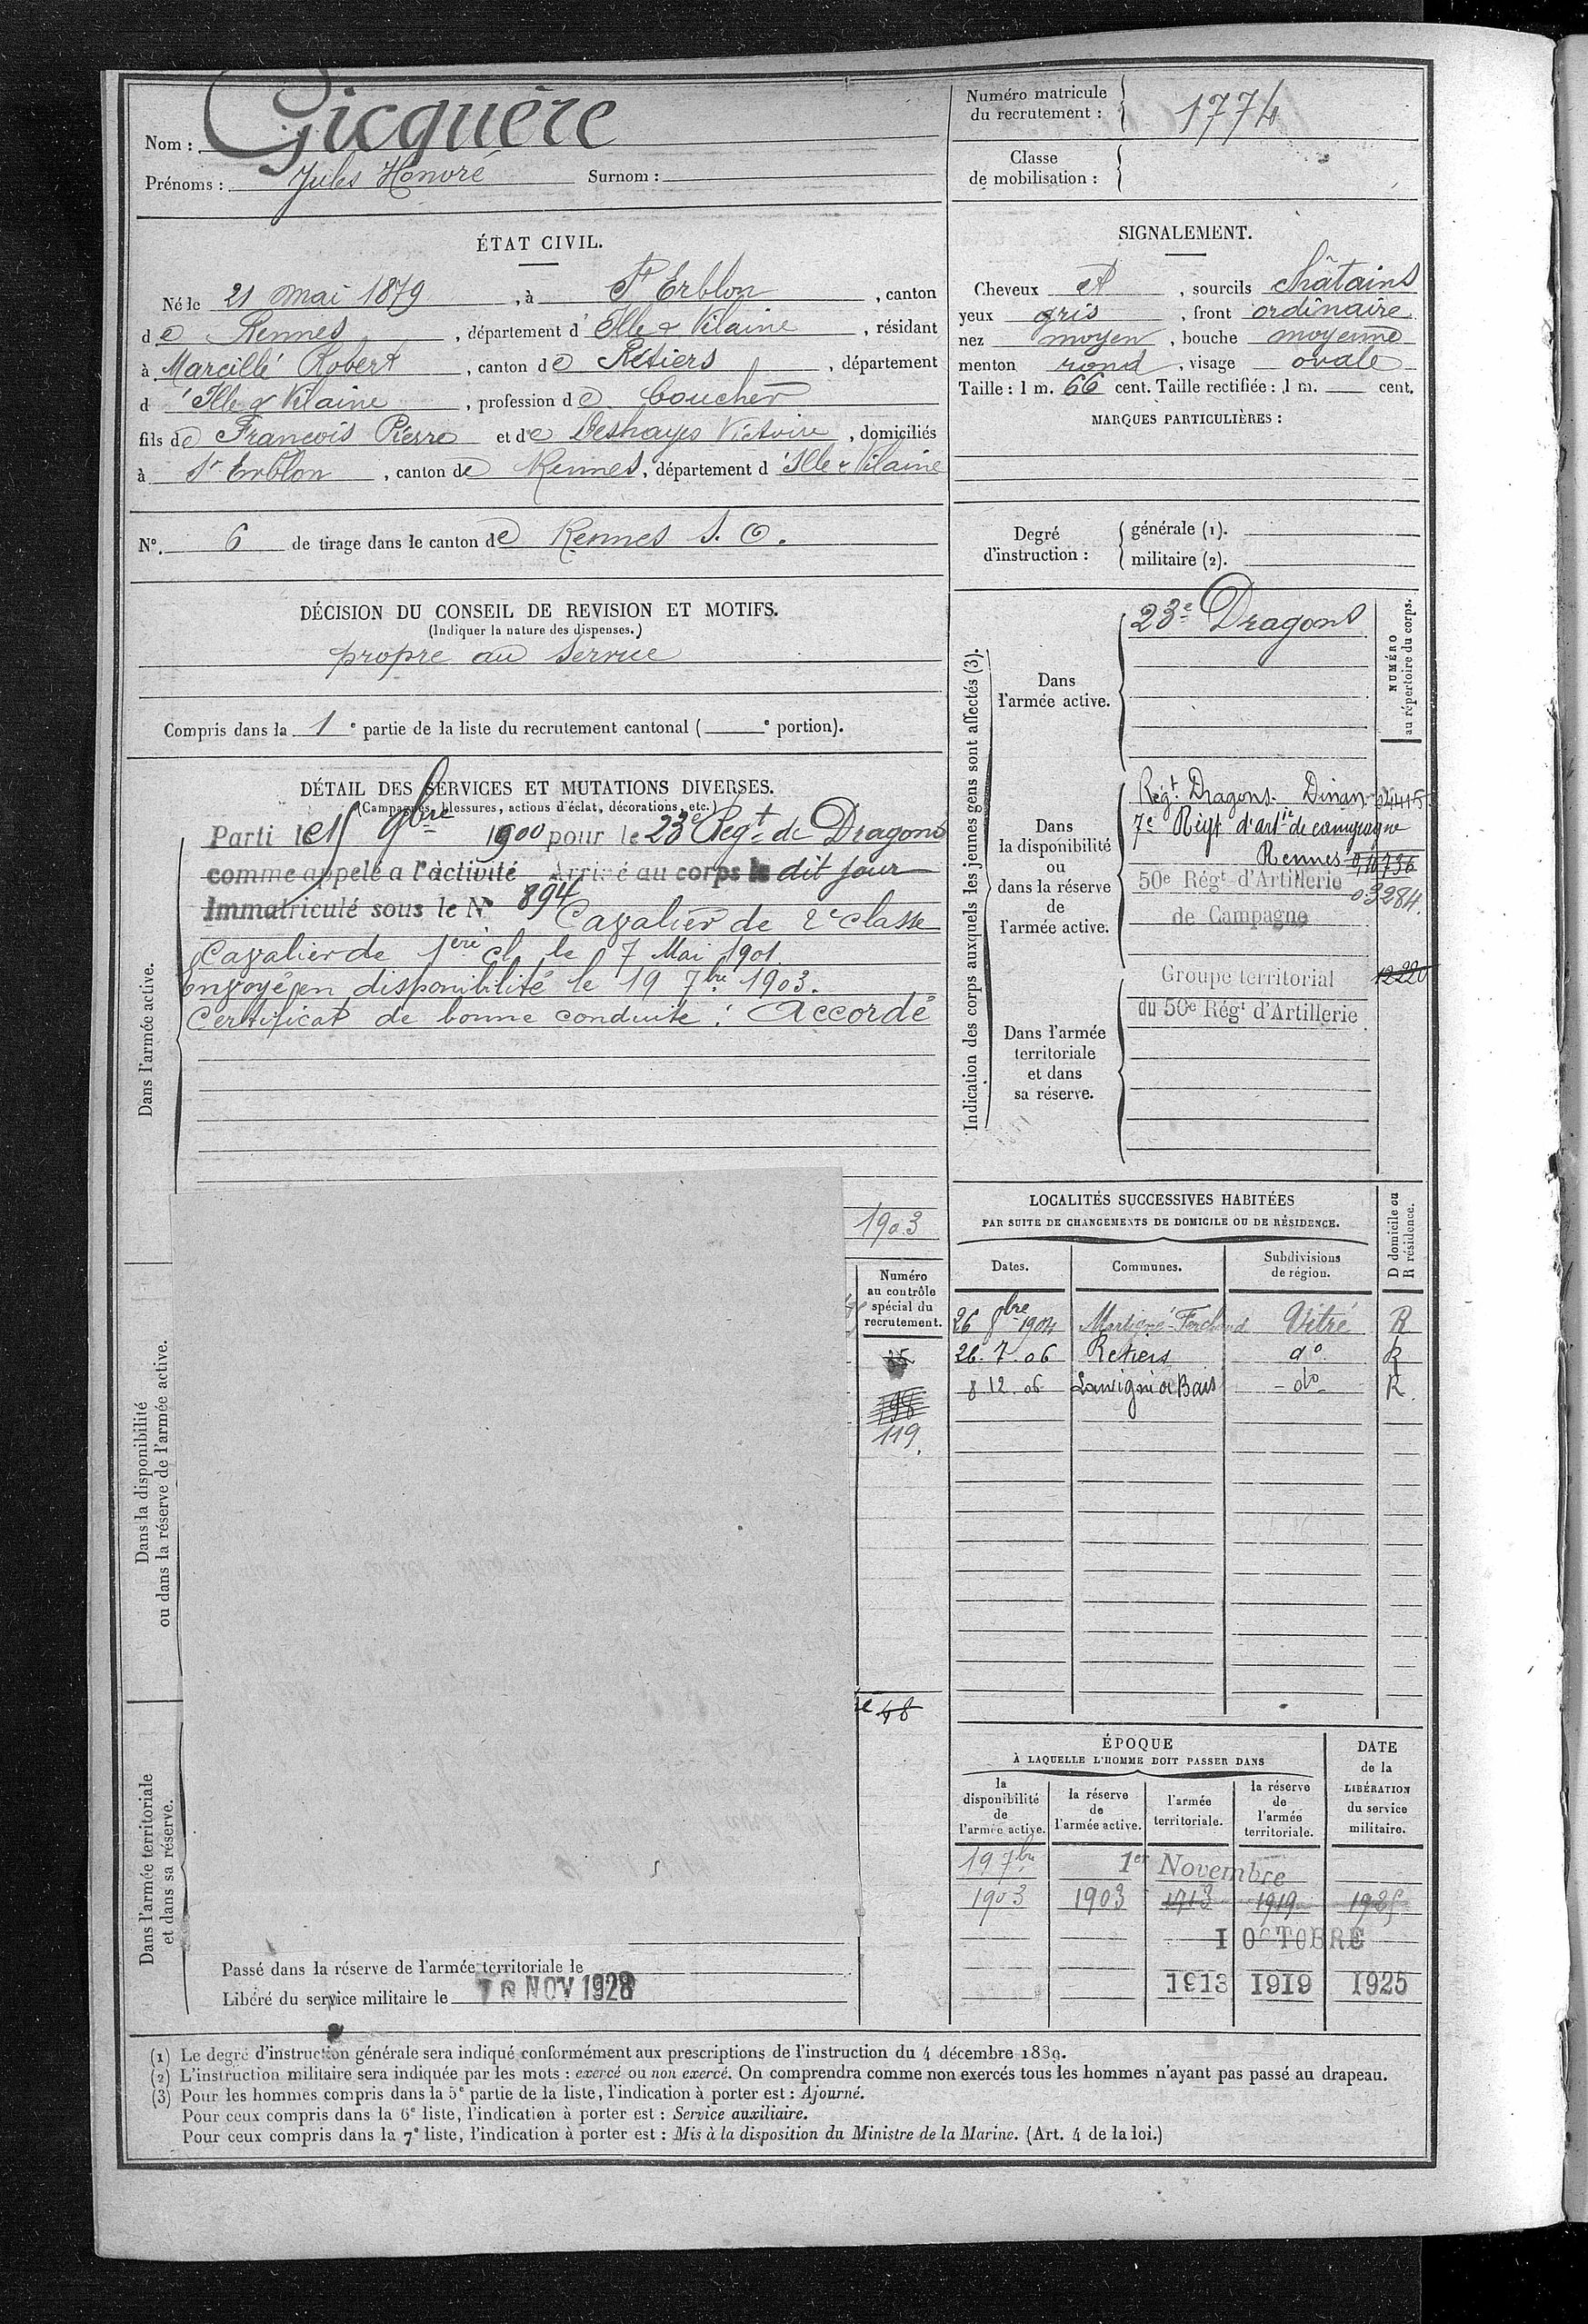 Nom : Gicquère
Prénoms : Jules Honoré Surnom :
Numéro matricule du recrutement : 1774
Classe de mobilisation :
ÉTAT CIVIL.
Né le 21 mai 1879, à St Erblon, canton
de Rennes, département d'Ille & Vilaine, résidant
à Marcillé Robert, canton de Rétiers, département
d'Ille & Vilaine, profession de boucher
fils de François Pierre et de Deshayes Victoire, domiciliés
à St Erblon, canton de Rennes, département d'Ille & Vilaine
N°. 6 de tirage dans le canton de Rennes S. O.
SIGNALEMENT.
Cheveux et, sourcils châtains
yeux gris, front ordinaire
nez moyen, bouche moyenne
menton rond, visage ovale
Taille : 1 m. 66 cent. Taille rectifiée : 1 m. cent.
MARQUES PARTICULIÈRES :
Degré d'instruction : générale (1).
militaire (2).
DÉCISION DU CONSEIL DE REVISION ET MOTIFS.
(Indiquer la nature des dispenses.)
propre au service
Compris dans la 1e partie de la liste du recrutement cantonal ( e portion).
DÉTAIL DES SERVICES ET MUTATIONS DIVERSES.
(Campagnes, blessures, actions d'éclat, décorations, etc.)
Dans l'armée active.
Parti le 15 9bre 1900 pour le 23e Regt de Dragons
comme appelé a l'activité Arrivé au corps le dit jour
Immatriculé sous le N° 894 Cavalier de 2e classe
Cavalier de 1ère cl le 7 Mai 1901.
Envoyé en disponibilité le 19 7bre 1903.
Certificat de bonne conduite : Accordé
1903
Dans la disponibilité
ou dans la réserve de l'armée active.
Numéro
au contrôle
spécial du
recrutement.
198
119.
48
Dans l'armée territoriale
et dans sa réserve.
Passé dans la réserve de l'armée territoriale le
Libéré du service militaire le NOV 1928
Indication des corps auxquels les jeunes gens sont affectés (3).
NUMÉRO
au répertoire du corps.
Dans
l'armée active.
23e Dragons
Dans
la disponibilité
ou
dans la réserve
de
l'armée active.
Régt Dragons Dinan
7e Régt d'artie de campagne
Rennes
50e Régt d'Artillerie 03284.
de Campagne
Dans l'armée
territoriale
et dans
sa réserve.
Groupe territorial 12220
du 50e Régt d'Artillerie
LOCALITÉS SUCCESSIVES HABITÉES
PAR SUITE DE CHANGEMENTS DE DOMICILE OU DE RÉSIDENCE.
D domicile ou
R résidence.
Dates. Communes. Subdivisions de région.
26 8bre 1904 Martigné-Ferchaud Vitré R
26. 7. 06 Retiers do R
8 12. 06 Louvigné de Bais do R
ÉPOQUE
À LAQUELLE L'HOMME DOIT PASSER DANS
la disponibilité de l'armée active. la réserve de l'armée active. l'armée territoriale. la réserve de l'armée territoriale.
DATE de la LIBÉRATION du service militaire.
19 7bre 1er Novembre
1903 1903 1913 1919 1925
1 OCTOBRE
1913 1919 1925
(1) Le degré d'instruction générale sera indiqué conformément aux prescriptions de l'instruction du 4 décembre 1889.
(2) L'instruction militaire sera indiquée par les mots : exercé ou non exercé. On comprendra comme non exercés tous les hommes n'ayant pas passé au drapeau.
(3) Pour les hommes compris dans la 5e partie de la liste, l'indication à porter est : Ajourné.
Pour ceux compris dans la 6e liste, l'indication à porter est : Service auxiliaire.
Pour ceux compris dans la 7e liste, l'indication à porter est : Mis à la disposition du Ministre de la Marine. (Art. 4 de la loi.)